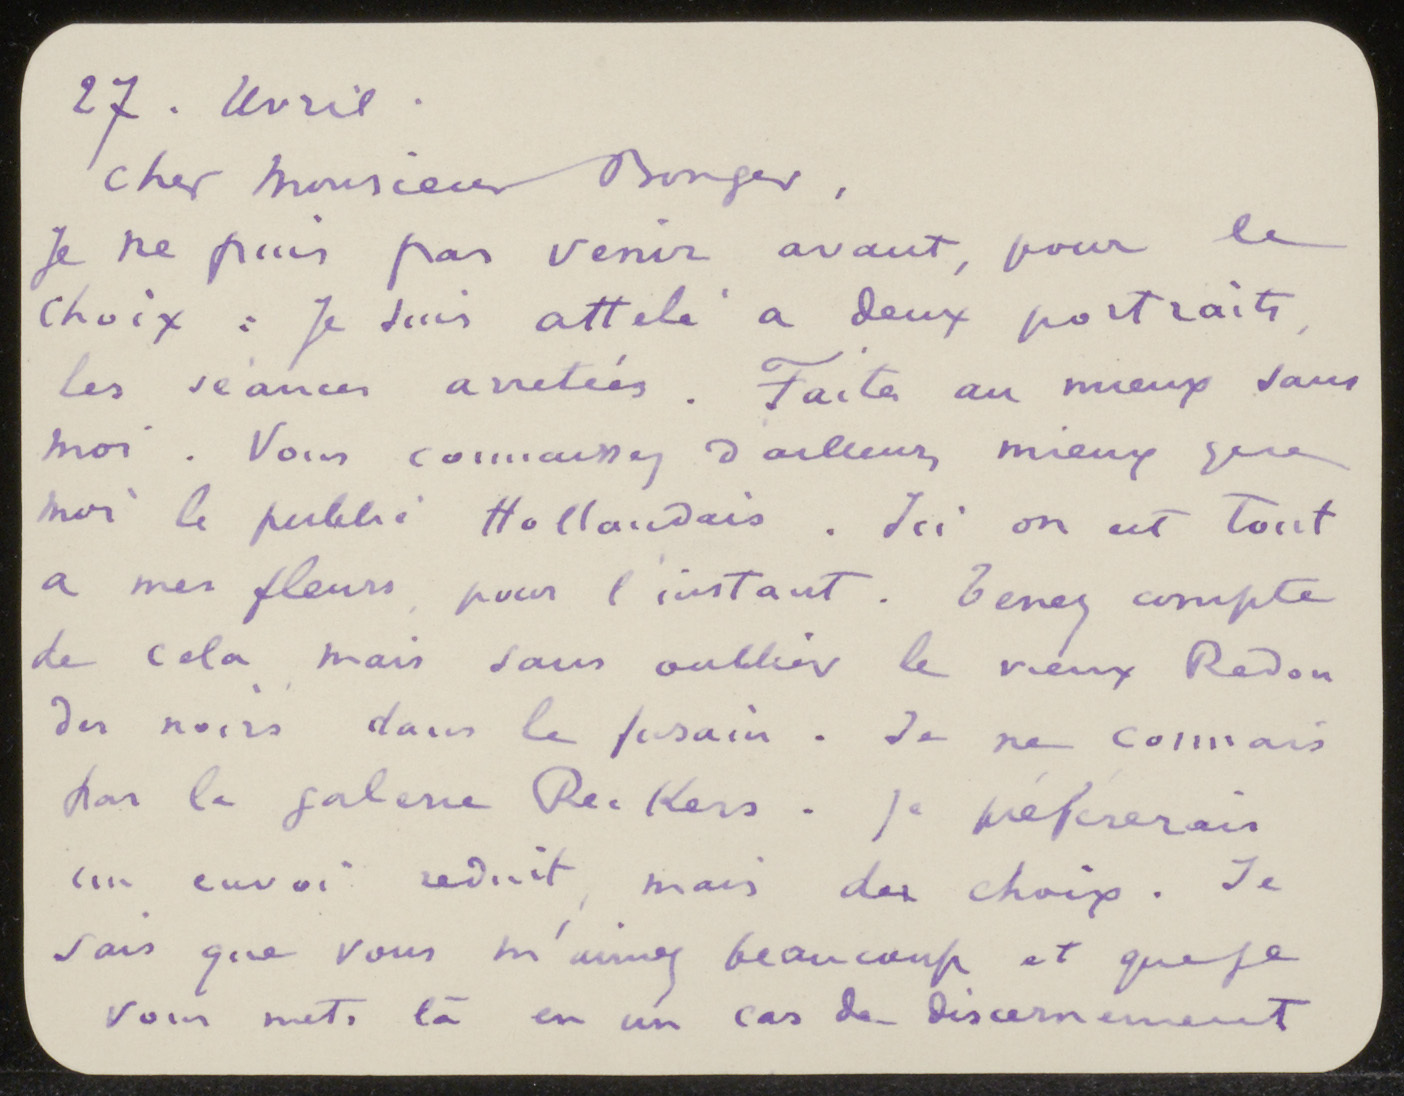 27. Avril.
Cher Monsieur Bonger,
Je ne puis pas venir avant, pour le
choix : Je suis attelé a deux portraits,
les séances arretées. Faites au mieux sans
moi. Vous connaissez d'ailleurs mieux que
moi le public Hollandais. Ici on est tout
a mes fleurs, pour l'instant. Tenez compte
de cela, mais sans oublier le vieux Redon
des noirs dans le fusain. Je ne connais
pas la galerie Reckers. Je préfererais
un envoi reduit, mais des choix. Je
sais que vous m'aimez beaucoup et que je
vous mets là en un cas de discernement